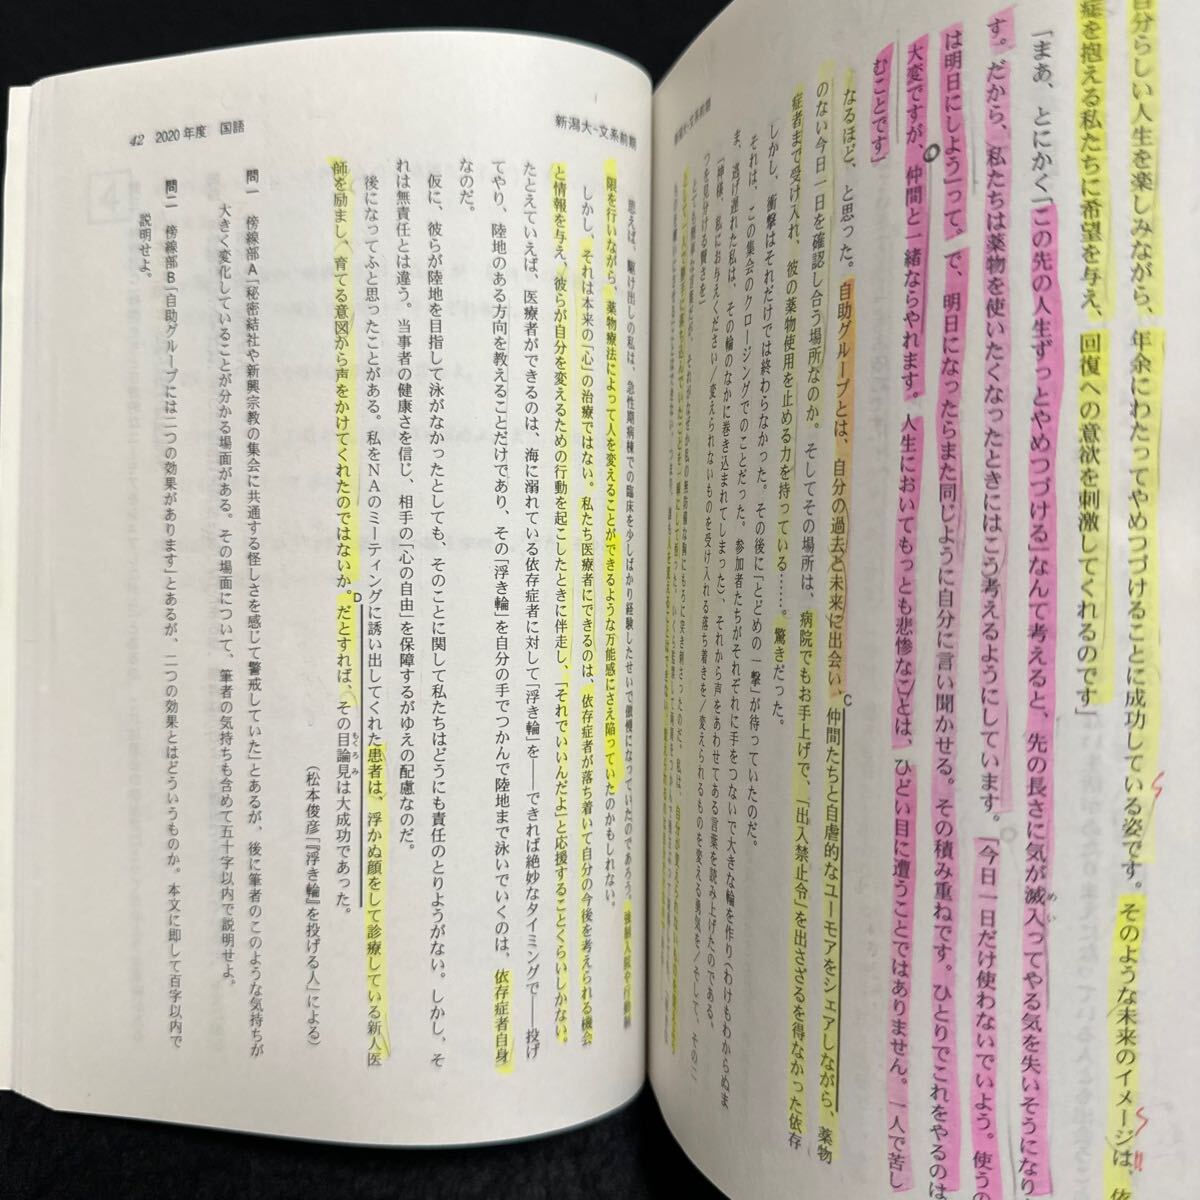 自分らしい人生を楽しみながら、年余にわたってやめつづけることに成功している姿です。そのような未来のイメージは、依
症を抱える私たちに希望を与え、回復への意欲を刺激してくれるのです」
「まあ、とにかく「この先の人生ずっとやめつづける」なんて考えると、先の長さに気が滅入ってやる気を失いそうになり
めい
す。だから、私たちは薬物を使いたくなったときにはこう考えるようにしています。「今日一日だけ使わないでいよう。使うの
は明日にしよう」って。で、明日になったらまた同じように自分に言い聞かせる。その積み重ねです。ひとりでこれをやるのは
大変ですが、仲間と一緒ならやれます。人生においてもっとも悲惨なことは、ひどい目に遭うことではありません。一人で苦し
むことです」
なるほど、と思った。自助グループとは、自分の過去と未来に出会い、仲間たちと自虐的なユーモアをシェアしながら、薬物
C
のない今日一日を確認し合う場所なのか。そしてその場所は、病院でもお手上げで、「出入禁止令」を出さざるを得なかった依存
症者まで受け入れ、彼の薬物使用を止める力を持っている……。驚きだった。
しかし、衝撃はそれだけでは終わらなかった。その後に「とどめの一撃」が待っていたのだ。
それは、この集会のクロージングでのことだった。参加者たちがそれぞれに手をつないで大きな輪を作り（わけもわからぬま
ま、逃げ遅れた私は、その輪のなかに巻き込まれてしまった）、それから声をあわせてある言葉を読み上げたのである。
「神様、私にお与えください／変えられないものを受け入れる落ち着きを／変えられるものを変える勇気を／そして、その二
つを見分ける賢さを」
新潟大－文系前期
新潟大－文系前期
42 2020年度 国語
思えば、駆け出しの私は、急性期病棟での臨床を少しばかり経験したせいで傲慢になっていたのだろう。強制入院や行動制
限を行いながら、薬物療法によって人を変えることができるような万能感にさえ陥っていたのかもしれない。
しかし、それは本来の「心」の治療ではない。私たち医療者にできるのは、依存症者が落ち着いて自分の今後を考えられる機会
と情報を与え、彼らが自分を変えるための行動を起こしたときに伴走し、「それでいいんだよ」と応援することくらいしかない。
たとえていえば、医療者ができるのは、海に溺れている依存症者に対して「浮き輪」を――できれば絶妙なタイミングで――投げ
てやり、陸地のある方向を教えることだけであり、その「浮き輪」を自分の手でつかんで陸地まで泳いでいくのは、依存症者自身
なのだ。
仮に、彼らが陸地を目指して泳がなかったとしても、そのことに関して私たちはどうにも責任のとりようがない。しかし、そ
れは無責任とは違う。当事者の健康さを信じ、相手の「心の自由」を保障するがゆえの配慮なのだ。
後になってふと思ったことがある。私をNAのミーティングに誘い出してくれた患者は、浮かぬ顔をして診療している新人医
師を励まし、育てる意図から声をかけてくれたのではないか。だとすれば、その目論見は大成功であった。
D
もくろみ
（松本俊彦「『浮き輪』を投げる人」による）
問一 傍線部A「秘密結社や新興宗教の集会に共通する怪しさを感じて警戒していた」とあるが、後に筆者のこのような気持ちが
大きく変化していることが分かる場面がある。その場面について、筆者の気持ちも含めて五十字以内で説明せよ。
問二 傍線部B「自助グループには二つの効果があります」とあるが、二つの効果とはどういうものか。本文に即して百字以内で
説明せよ。